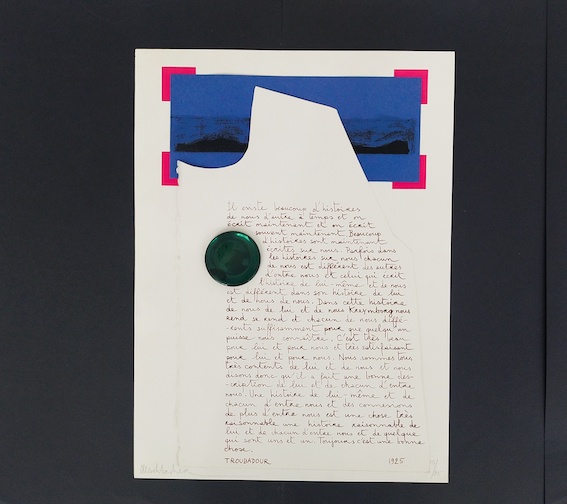 Il existe beaucoup d'histoires
de nous d'autre à temps et on
écrit maintenant et on écrit
souvent maintenant. Beaucoup
d'histoires sont maintenant
écrites sur nous. Parfois dans
les histoires sur nous chacun
de nous est différent des autres
d'entre nous et celui qui écrit
l'histoire de lui-même et de nous
est différent dans son histoire de lui
et de nous de nous. Dans cette histoire
de nous de lui et de nous nous
rend se rend et chacun de nous diffé-
-rents suffisamment pour que quelqu'un
puisse nous connaître. C'est très beau
pour lui et pour nous et très satisfaisant
pour lui et pour nous. Nous sommes tous
très contents de lui et de nous et nous
disons donc qu'il a fait une bonne des-
-cription de lui et de chacun d'entre
nous. Une histoire de lui-même et de
chacun d'entre nous et des connexions
de plus d'entre nous est une chose très
raisonnable une histoire raisonnable de
lui et de chacun d'entre nous et de quelque
qui sont uns et un. Toujours c'est une bonne
chose.
TROUBADOUR 1925